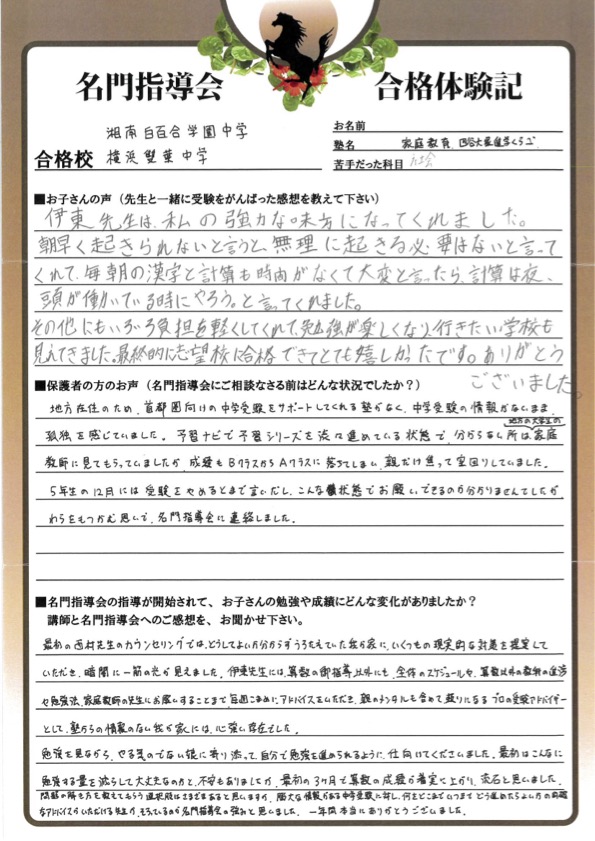 名門指導会 合格体験記
合格校
湘南白百合学園中学
横浜雙葉中学
お名前
塾名 家庭教育、四谷大塚進学くらぶ
苦手だった科目 社会
■お子さんの声（先生と一緒に受験をがんばった感想を教えて下さい）
伊東先生は、私の強力な味方になってくれました。
朝早く起きられないと言うと、無理に起きる必要はないと言って
くれて、毎朝の漢字と計算も時間がなくて大変と言ったら、計算は夜、
頭が働いている時にやろう。と言ってくれました。
その他にもいろいろ負担を軽くしてくれて、勉強が楽しくなり、行きたい学校も
見えてきました。最終的に志望校に合格できてとても嬉しかったです。ありがとう
ございました。
■保護者の方のお声（名門指導会にご相談なさる前はどんな状況でしたか？）
地方在住のため、首都圏向けの中学受験をサポートしてくれる塾がなく、中学受験の情報がないまま
孤独を感じていました。予習ナビで予習シリーズを淡々進めている状態で、分からない所は地方の大学生の家庭
教師に見てもらっていましたが、成績もBクラスからAクラスに落ちてしまい、親だけ焦って空回りしていました。
5年生の12月には受験をやめるとまで言いだし、こんな状態でお願いできるのか分かりませんでしたが
わらをもつかむ思いで、名門指導会に連絡しました。
■名門指導会の指導が開始されて、お子さんの勉強や成績にどんな変化がありましたか？
講師と名門指導会へのご感想を、お聞かせ下さい。
最初の西村先生のカウンセリングでは、どうしてよいか分からずうろたえていた我が家に、いくつもの現実的な対策を提案して
いただき、暗闇に一筋の光が見えました。伊東先生には、算数の御指導以外にも、全体のスケジュールや、算数以外の教科の進渉
や勉強法、家庭教師の先生にお願いすることまで毎回こまめにアドバイスをいただき、親のメンタルも含めて頼りになるプロの受験アドバイザー
として、塾からの情報のない我が家には、心強い存在でした。
勉強を見ながら、やる気のでない娘に寄り添って、自分で勉強を進められるように、仕向けてくださいました。最初はこんなに
勉強する量を減らして大丈夫なのかと、不安もありましたが、最初の3ヶ月で算数の成績が着実に上がり、流石と思いました。
問題の解き方を教えてもらう選択肢はさまざまあると思いますが、膨大な情報がある中学受験に対し、何をどこまでいつまでどう進めたらよいかの的確
なアドバイスがいただける先生が、そろっているのが名門指導会の強みと思いました。一年間本当にありがとうございました。